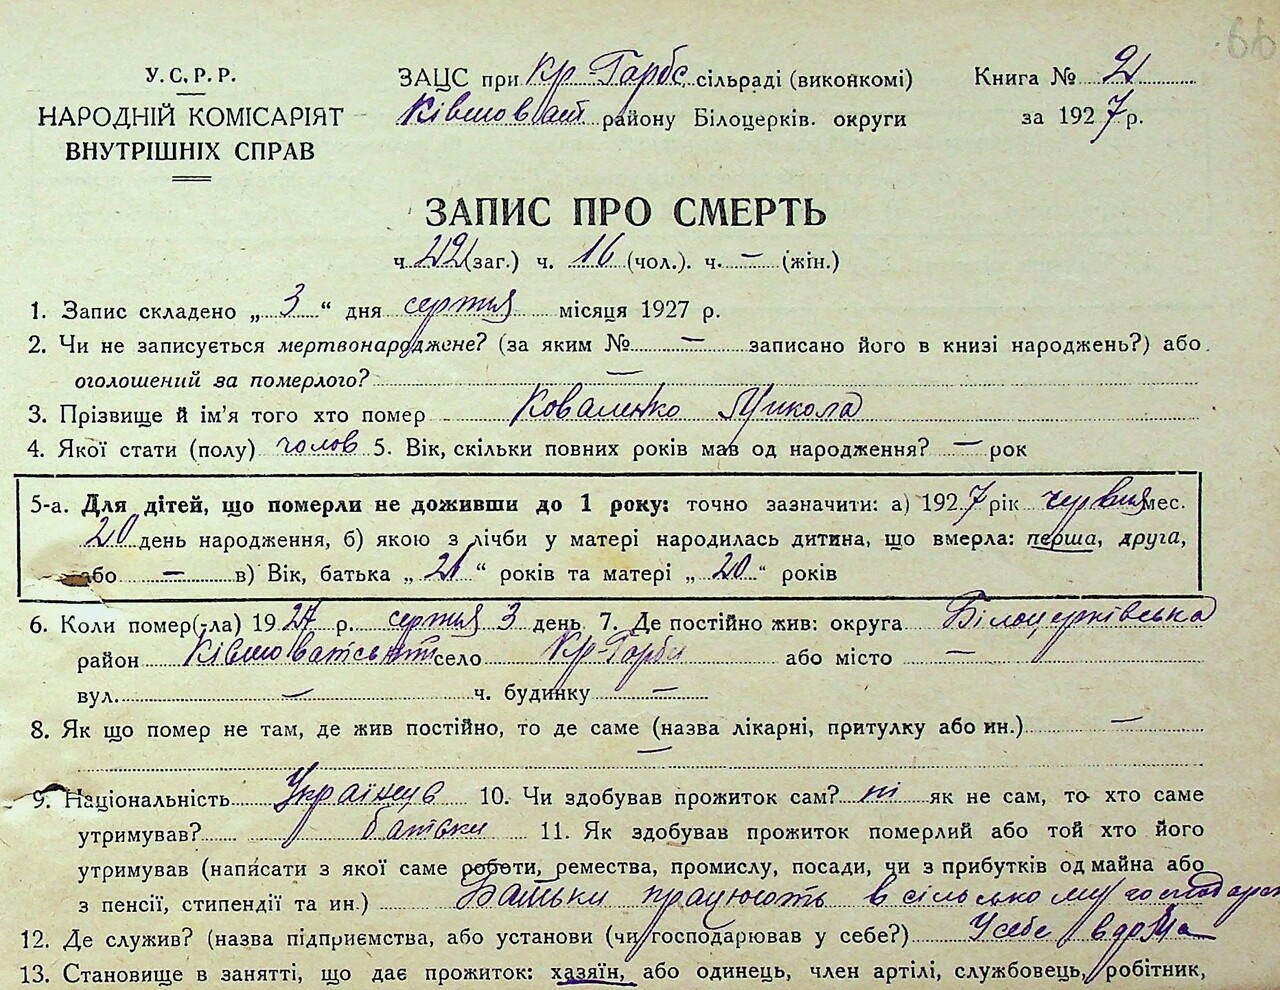 66
У.С.Р.Р.
НАРОДНІЙ КОМІСАРІЯТ
ВНУТРІШНІХ СПРАВ
ЗАЦС при Кр-Гарбс. сільраді (виконкомі)
Ківшоват району Білоцерків. округи
Книга № 2
за 1927 р.
ЗАПИС ПРО СМЕРТЬ
ч. 22 (заг.) ч. 16 (чол.). ч. — (жін.)
1. Запис складено „ 3 “ дня серпня місяця 1927 р.
2. Чи не записується мертвонароджене? (за яким № — записано його в книзі народжень?) або
оголошений за померлого? —
3. Прізвище й ім'я того хто помер Коваленко Микола
4. Якої стати (полу) чолов 5. Вік, скільки повних років мав од народження? — рок
5-а. Для дітей, що померли не доживши до 1 року: точно зазначити: а) 1927 рік червня мес.
20 день народження, б) якою з лічби у матері народилась дитина, що вмерла: перша, друга,
або — в) Вік, батька „ 21 “ років та матері „ 20 “ років
6. Коли помер(-ла) 1927 р. серпня 3 день 7. Де постійно жив: округа Білоцерківська
район Ківшоватський село Кр-Гарби або місто —
вул. — ч. будинку —
8. Як що помер не там, де жив постійно, то де саме (назва лікарні, притулку або ин.) —
—
9. Національність Українців 10. Чи здобував прожиток сам? ні як не сам, то хто саме
утримував? батьки 11. Як здобував прожиток померлий або той хто його
утримував (написати з якої саме роботи, ремества, промислу, посади, чи з прибутків од майна або
з пенсії, стипендії та ин.) Батьки працюють в сільському господарст
12. Де служив? (назва підприємства, або установи (чи господарював у себе?) У себе вдома
13. Становище в занятті, що дає прожиток: хазяїн, або одинець, член артілі, службовець, робітник,